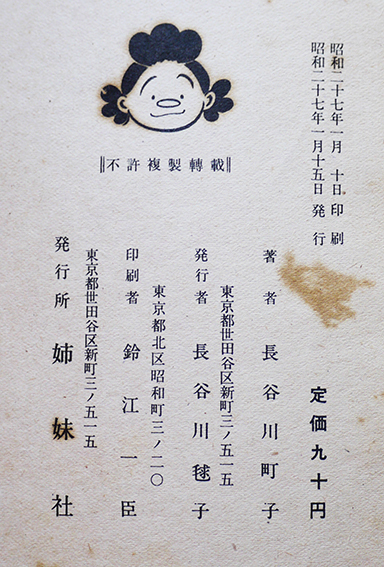 昭和二十七年一月　十日　印刷
昭和二十七年一月十五日　発行
定価九十円
著者　長谷川町子
東京都世田谷区新町三ノ五一五
発行者　長谷川毬子
東京都北区昭和町三ノ二〇
印刷者　鈴江一臣
東京都世田谷区新町三ノ五一五
発行所　姉妹社
‖不許複製轉載‖